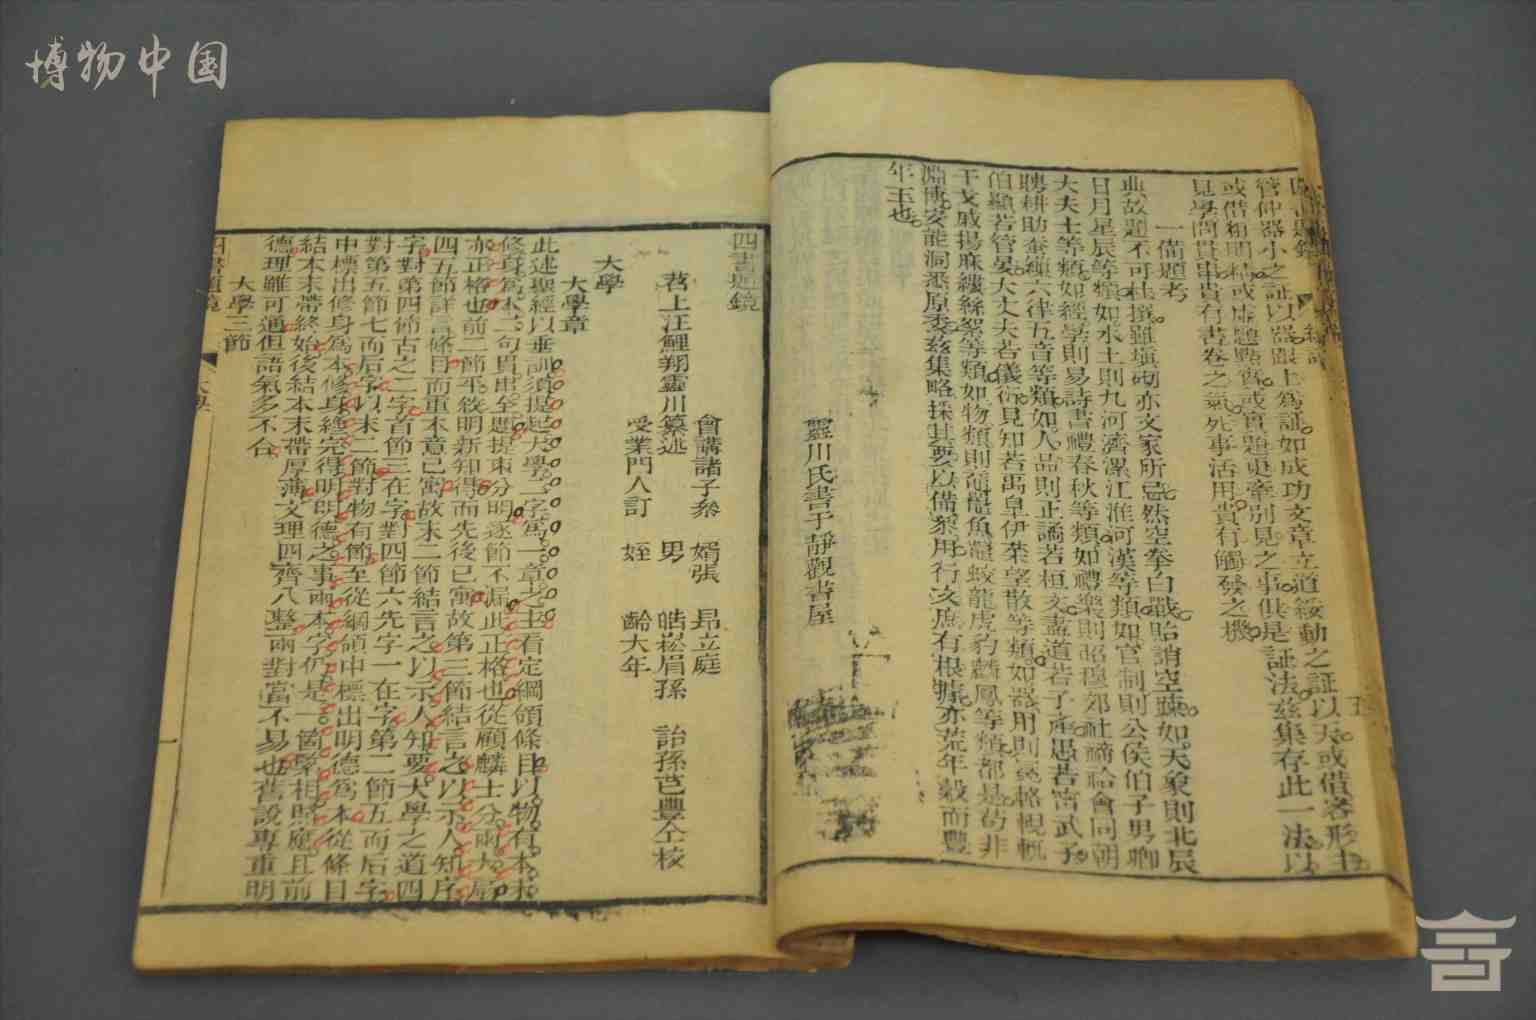 博物中国
管仲器小之証以器跟上爲証如成功文章立道綏動之証以天或借客形主
或借相明精或虛題點實或實題更牽別見之事俱是証法茲集存此一法以
見學問貫串貴有書卷之氣死事活用貴有觸發之機
一備題考
典故題不可杜撰雖填砌亦文家所忌然空拳白戰貽誚空疎如天象則北辰
日月星辰等類如水土則九河濟漯江淮河漢等類如官制則公侯伯子男卿
大夫士等類如經學則易詩書禮春秋等類如禮樂則昭穆郊社禘祫會同朝
聘耕助蚕繅六律五音等類如人品則正譎若桓文藎道若子產愚若甯武子
伯顯若管晏大丈夫若儀衍見知若禹皐伊萊望散等類如器用則冕輅輗軏
干戈戚揚麻縷絲絮等類如物類則黿鼉魚鼈蛟龍虎豹麟鳳等類都是苟非
淵博安能洞悉原委茲集略採其要以備參用行文庶有根據亦荒年穀而豐
年玉也
靈川氏書于靜觀書屋
四書題鏡
會講諸子叅 婿張 昻立庭
茗上汪鯉翔靈川纂述 男 皓崧眉孫 詒孫芑豐仝校
受業門人訂 姪 齡大年
大學
大學章
此述聖經以垂訓須提岀大學二字爲一章之主看定綱領條目以物有本末
修身爲本二句貫串至題提束分明逐節不漏此正格也從顧麟士分兩大扇
亦正格也前二節平敘明新知得而先後已寓故第三節結言之以示人知序
四五節詳言條目而重本意已寓故末二節結言之以示人知要大學之道四
字對第四節古之二字首節三在字對四節六先字一在字第二節五而后字
對第五節七而后字以末二節對物有節至從綱領中標出明德爲本從條目
中標出修身爲本修身總完得明明德之事兩本字仍是一箇緊相照應且前
結本末帶終始後結本末帶厚薄文理四齊八整兩對當不易也舊說專重明
德理雖可通但語氣多不合
大學三節
四書題鏡
大學
一